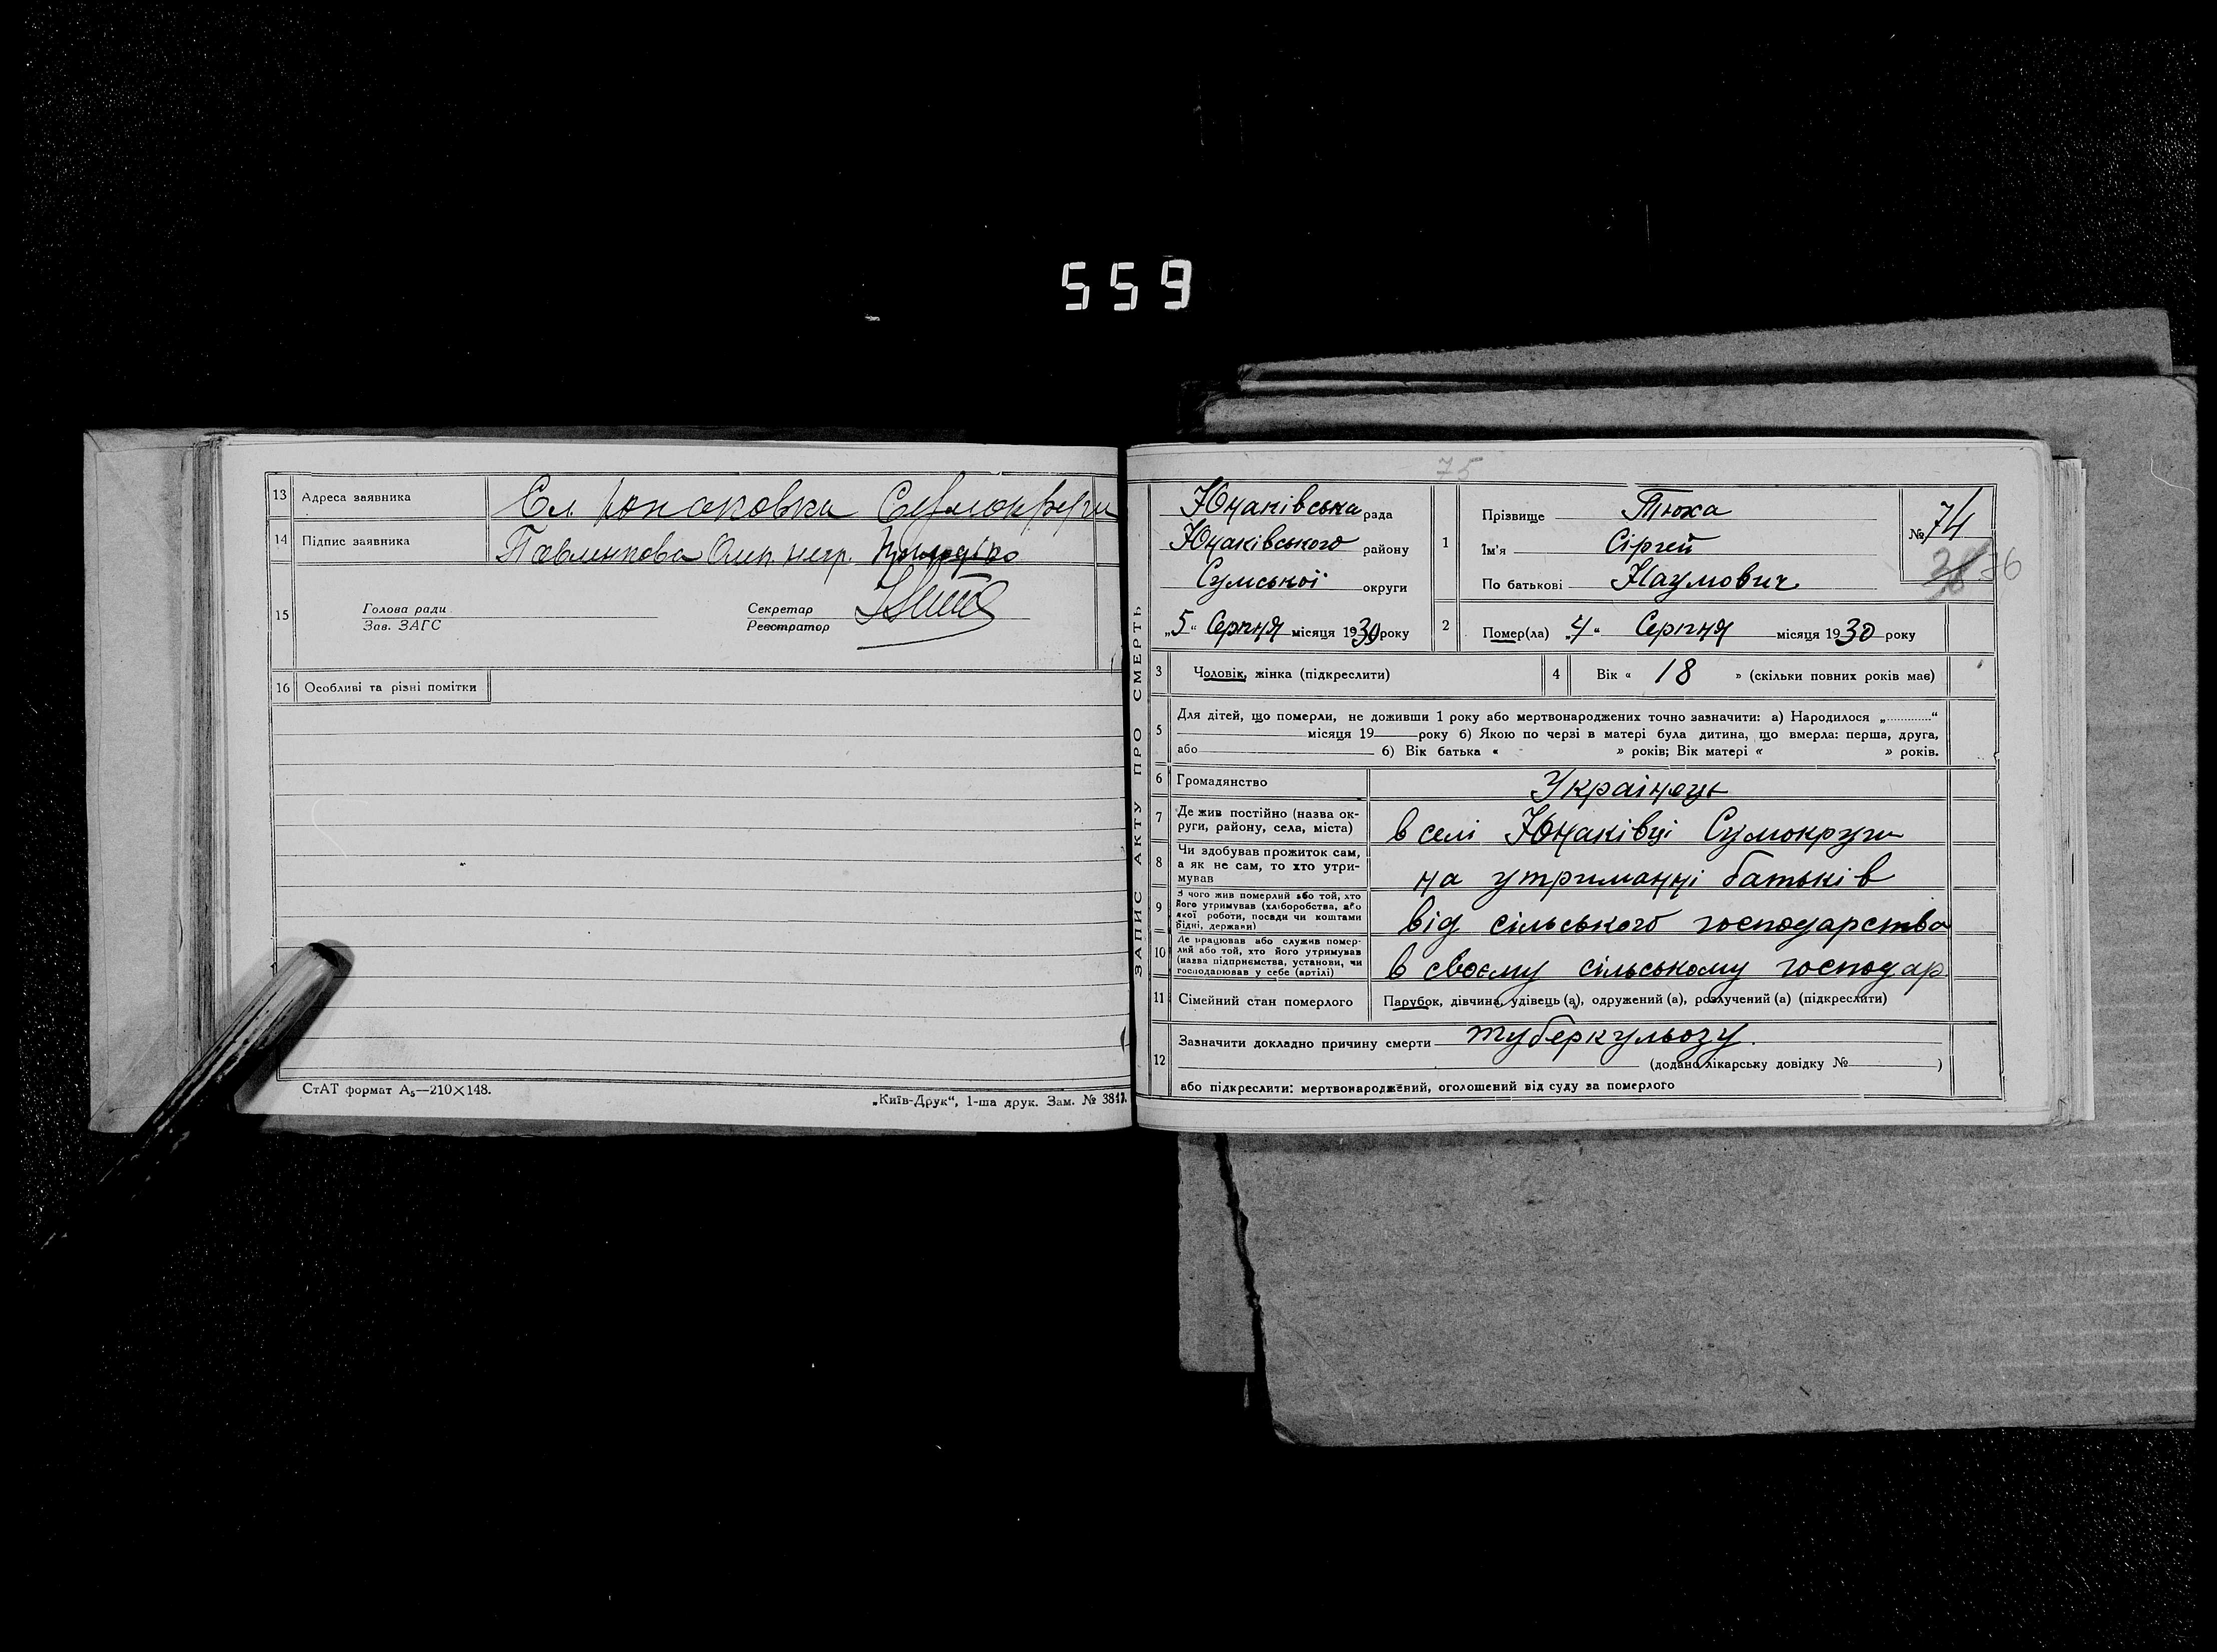 559
13 Адреса заявника Сл Юнаковка Сумокруги
14 Підпис заявника Павленкова негр.
15 Голова ради Секретар
Зав. ЗАГС Реєстратор
16 Особливі та різні помітки
СтАТ формат А₅—210×148.
„Київ-Друк“, 1-ша друк. Зам. № 3817.
75
ЗАПИС АКТУ ПРО СМЕРТЬ
Юнаківська рада
Юнаківського району
Сумської округи
„5“ Серпня місяця 1930 року
1 Прізвище Тюха
Ім'я Сіргей
По батькові Наумович
№ 74
38 76
2 Помер(ла) „4“ Серпня місяця 1930 року
3 Чоловік, жінка (підкреслити)
4 Вік « 18 » (скільки повних років має)
5 Для дітей, що померли, не доживши 1 року або мертвонароджених точно зазначити: а) Народилося „.............“
місяця 19 року б) Якою по черзі в матері була дитина, що вмерла: перша, друга,
або 6) Вік батька « » років; Вік матері « » років.
6 Громадянство Українець
7 Де жив постійно (назва округи, району, села, міста) в селі Юнаківці Сумокруги
8 Чи здобував прожиток сам,
а як не сам, то хто утри-
мував на утриманні батьків
9 З чого жив померлий або той, хто
його утримував (хліборобства, або
якої роботи, посади чи коштами
рідні, держави) від сільського господарства
10 Де працював або служив помер-
лий або той, хто його утримував
(назва підприємства, установи, чи
господарював у себе (артілі) в своєму сільському господар
11 Сімейний стан померлого Парубок, дівчина, удівець (а), одружений (а), розлучений (а) (підкреслити)
12 Зазначити докладно причину смерти туберкульозу.
(додано лікарську довідку № )
або підкреслити: мертвонароджений, оголошений від суду за померлого